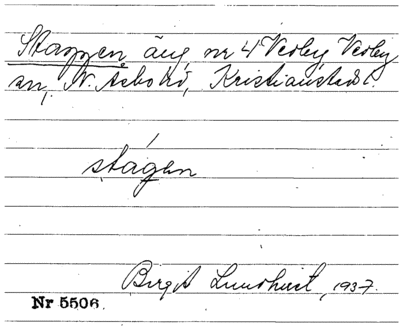 Stappen äng nr 4 Verby Verby
sn, N. Asbo hd, Kristianstads l.
stágen
Birgit Lundkvist, 1937.
Nr 5506